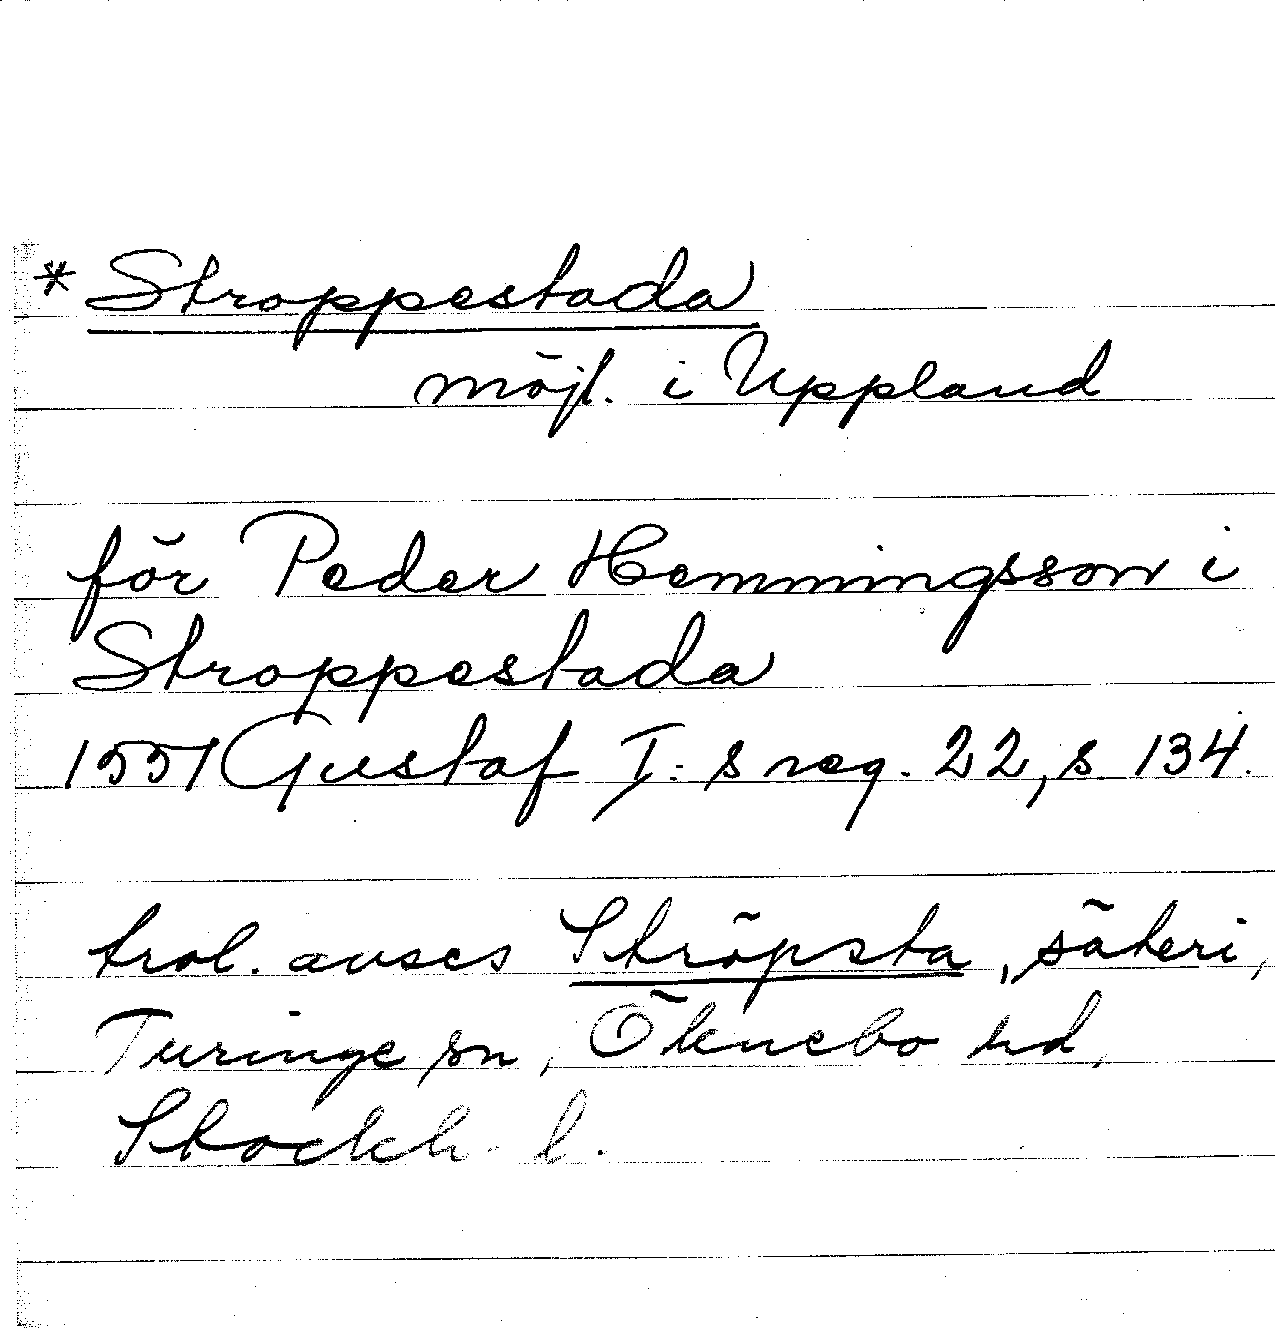 * Stroppestada
möjl. i Uppland
för Peder Hemmingsson i
Stroppestada
1551 Gustaf I:s reg. 22, s 134.
trol. avses Ströpsta, säteri,
Turinge sn, Öknebo hd,
Stockh. l.